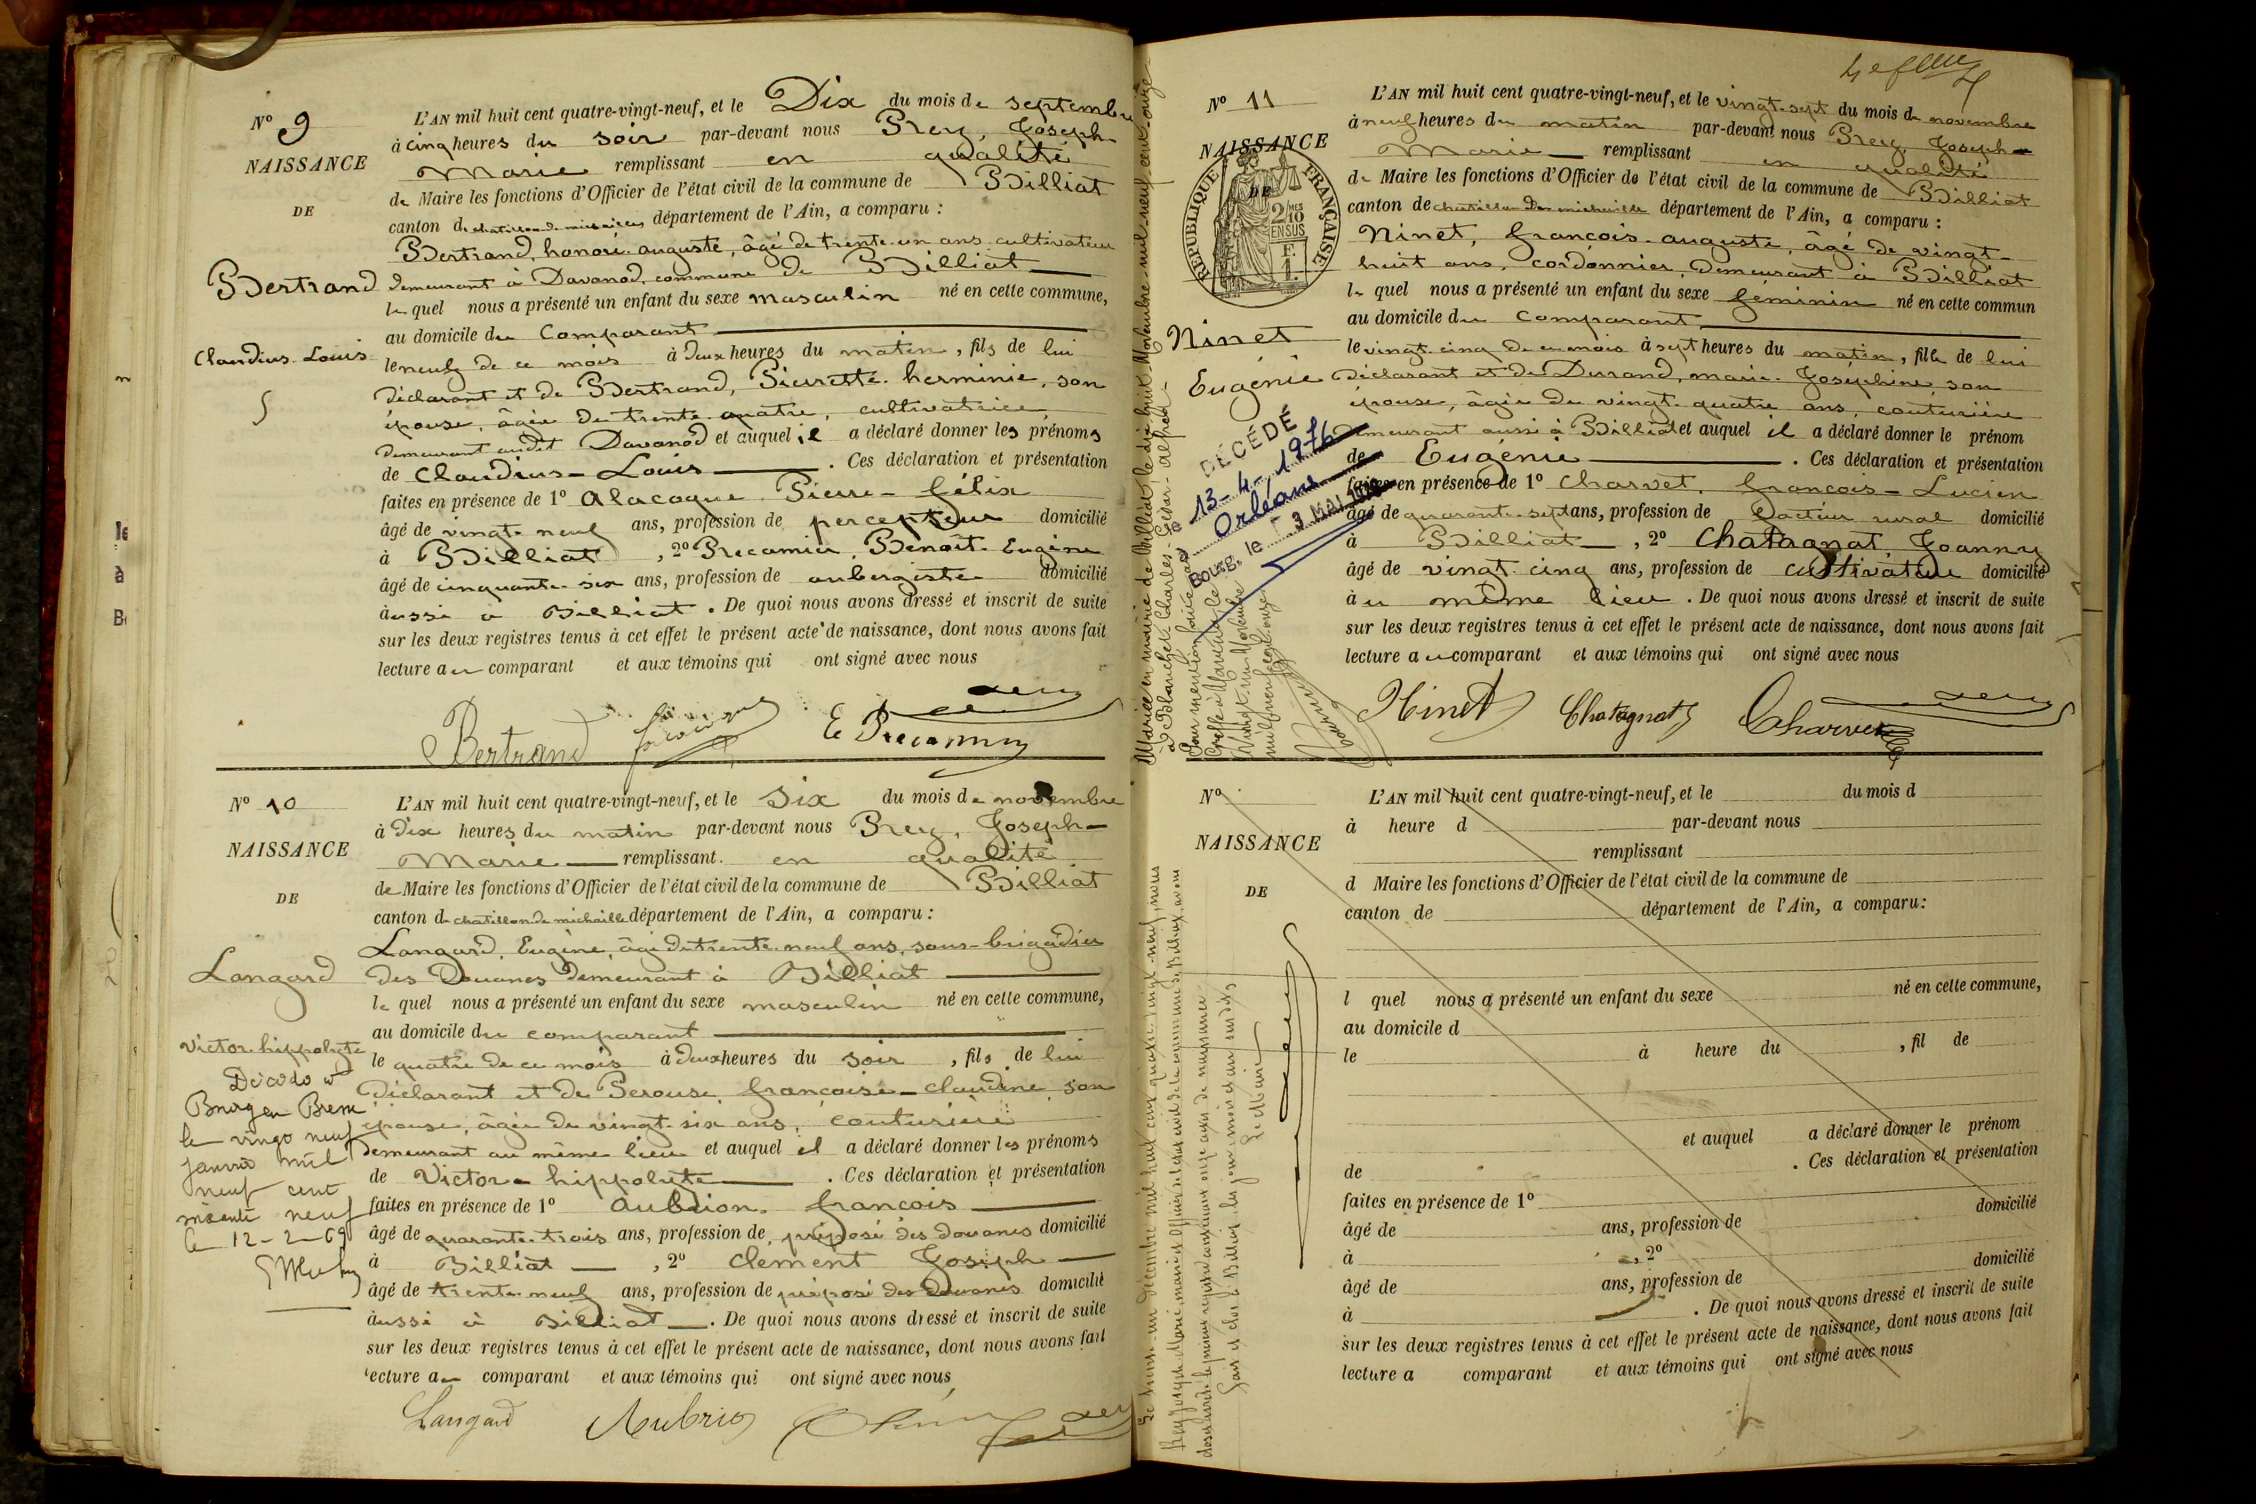 N° 9
NAISSANCE
DE
Bertrand
Claudius Louis
L'AN mil huit cent quatre-vingt-neuf, et le Dix du mois de septembre
à cinq heures du soir par-devant nous Prey, Joseph
Marie remplissant en qualité
de Maire les fonctions d'Officier de l'état civil de la commune de Billiat
canton de chatillon de michaille département de l'Ain, a comparu :
Bertrand, honoré auguste, âgé de trente un ans cultivateur
demeurant à Davanod, commune de Billiat
lequel nous a présenté un enfant du sexe masculin né en cette commune,
au domicile du comparant
le neuf de ce mois à deux heures du matin, fils de lui
déclarant et de Bertrand, Pierrette herminie, son
épouse, âgée de trente quatre, cultivatrice,
demeurant audit Davanod et auquel il a déclaré donner les prénoms
de Claudius-Louis . Ces déclaration et présentation
faites en présence de 1° Alacoque Pierre-Félix
âgé de vingt neuf ans, profession de percepteur domicilié
à Billiat , 2° Precamier, Benoît Eugène
âgé de cinquante six ans, profession de aubergiste domicilié
aussi à Billiat . De quoi nous avons dressé et inscrit de suite
sur les deux registres tenus à cet effet le présent acte de naissance, dont nous avons fait
lecture au comparant et aux témoins qui ont signé avec nous
Bertrand E Precamier
N° 10
NAISSANCE
DE
Langard
Victor hippolyte
Décédé à
Bourg en Bresse
le vingt neuf
janvier mil
neuf cent
soixante neuf
le 12-2-69
L'AN mil huit cent quatre-vingt-neuf, et le six du mois de novembre
à dix heures du matin par-devant nous Prey, Joseph-
Marie remplissant en qualité
de Maire les fonctions d'Officier de l'état civil de la commune de Billiat
canton de chatillon de michaille département de l'Ain, a comparu :
Langard, Eugène, âgé de trente neuf ans, sous-brigadier
des Douanes demeurant à Billiat
lequel nous a présenté un enfant du sexe masculin né en cette commune,
au domicile du comparant
le quatre de ce mois à deux heures du soir , fils de lui
déclarant et de Perouse, françoise-claudine, son
épouse, âgée de vingt six ans, couturière
demeurant au même lieu et auquel il a déclaré donner les prénoms
de Victor-hippolyte . Ces déclaration et présentation
faites en présence de 1° Aubrion, françois
âgé de quarante trois ans, profession de préposé des douanes domicilié
à Billiat , 2° Clement Joseph
âgé de trente neuf ans, profession de préposé des douanes domicilié
aussi à Billiat . De quoi nous avons dressé et inscrit de suite
sur les deux registres tenus à cet effet le présent acte de naissance, dont nous avons fait
lecture au comparant et aux témoins qui ont signé avec nous
Langard Aubrion
N° 11
NAISSANCE
DE
RÉPUBLIQUE FRANÇAISE
2/10MES
EN SUS
F.
1.
Ninet
Eugénie
DÉCÉDÉ
le 13-4-1976
à Orléans
Bourg, le 3 MAI
Mariée en mairie de Billiat, le dix huit Novembre mil neuf cent onze
à Blanchet Charles-César-Alfred
Pour mention faite
Greffe à Nantua le
Vingt-un Novembre
mil neuf cent onze
L'AN mil huit cent quatre-vingt-neuf, et le vingt-sept du mois de novembre
à neuf heures du matin par-devant nous Prey, Joseph-
Marie remplissant en qualité
de Maire les fonctions d'Officier de l'état civil de la commune de Billiat
canton de chatillon de michaille département de l'Ain, a comparu :
Ninet, françois-auguste, âgé de vingt-
huit ans, cordonnier, demeurant à Billiat
lequel nous a présenté un enfant du sexe féminin né en cette commun
au domicile du comparant
le vingt cinq de ce mois à sept heures du matin, fille de lui
déclarant et de Durand, marie Joséphine, son
épouse, âgée de vingt quatre ans, couturière
demeurant aussi à Billiat et auquel il a déclaré donner le prénom
de Eugénie . Ces déclaration et présentation
faites en présence de 1° Charvet, françois-Lucien
âgé de quarante-sept ans, profession de facteur rural domicilié
à Billiat , 2° Chatagnat, Joanny
âgé de vingt cinq ans, profession de cultivateur domicilié
au même lieu . De quoi nous avons dressé et inscrit de suite
sur les deux registres tenus à cet effet le présent acte de naissance, dont nous avons fait
lecture au comparant et aux témoins qui ont signé avec nous
Ninet Chatagnat Charvet
N°
NAISSANCE
DE
L'AN mil huit cent quatre-vingt-neuf, et le du mois d
à heure d par-devant nous
remplissant
d Maire les fonctions d'Officier de l'état civil de la commune de
canton de département de l'Ain, a comparu :
l quel nous a présenté un enfant du sexe né en cette commune,
au domicile d
le à heure du , fil de
et auquel a déclaré donner le prénom
de . Ces déclaration et présentation
faites en présence de 1°
âgé de ans, profession de domicilié
à , 2°
âgé de ans, profession de domicilié
à . De quoi nous avons dressé et inscrit de suite
sur les deux registres tenus à cet effet le présent acte de naissance, dont nous avons fait
lecture a comparant et aux témoins qui ont signé avec nous
Le trente-un décembre mil huit cent quatre-vingt-neuf, nous
Prey Joseph Marie, maire et officier de l'état civil de la commune de Billiat, avons
clos et arrêté le présent registre contenant onze actes de naissance
Fait et clos à Billiat, les jour, mois et an sus dits
Le Maire